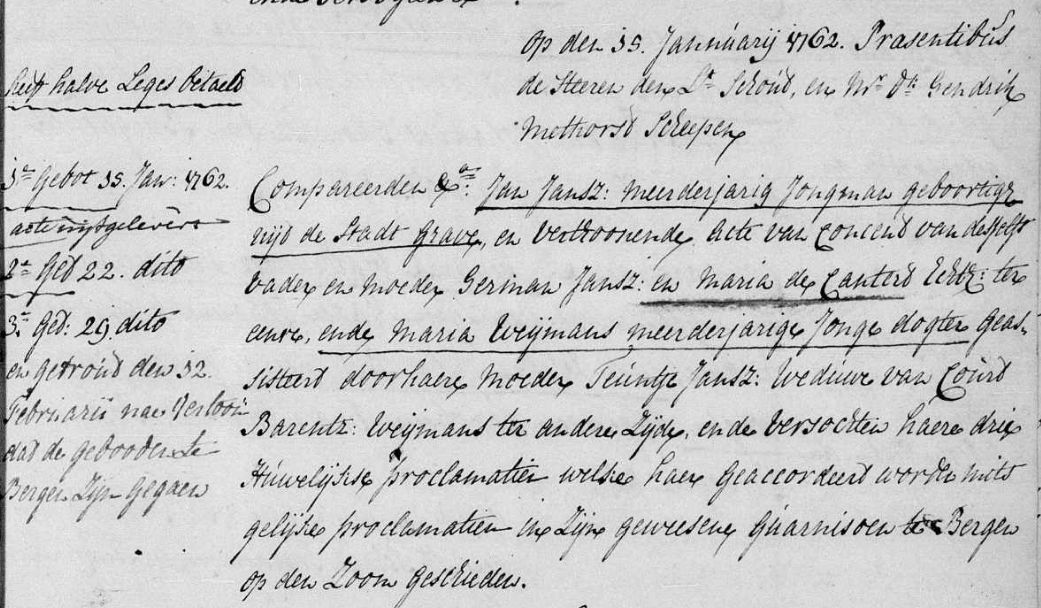 op den 15. Januarij 1762. Præsentibus
de Heeren den Lt Schout, en Mr Dk Hendrik
Methorst Schepen
heeft halve Leges betaelt
1e Gebot 15. Jan: 1762.
acte uijtgelevert
2e Geb 22. dito
3e Geb: 29 dito
en getrout den 12.
Februarij nae vertoon
dat de geboden te
Bergen Zijn gegaen
Compareerden Jan Jansz: meerderjarig Jongman geboortig
uijt de Stadt Grave, en vertoonende Acte van Concent van desselfs
vader en moeder Herman Jansz: en Maria de Canterd Eerst: ter
eenre, ende Maria Weijmans meerderjarige Jonge dogter Geas-
sisteerd door haere Moeder Teuntje Jansz: Weduwe van Courd
Barentz: Weijmans ter andere Zijde, ende versochten haere drie
Huwelijkse proclamatien welke haer geaccordeerd worde mits
gelijke proclamatien in Zijn geweesene guarnisoen te Bergen
op den Zoom geschieden.